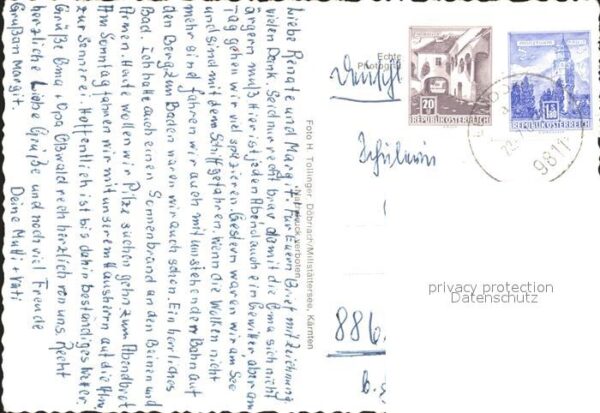 Liebe Renate und Margit! Für Euern Brief mit Zeichnung
vielen Dank. Seid nur recht brav damit die Oma sich nicht
ärgern muß. Hier ist jeden Abend auch ein Gewitter, aber am
Tag gehen wir viel spazieren. Gestern waren wir am See
und sind mit dem Schiff gefahren. Wenn die Wolken nicht
mehr sind fahren wir auch mit umstehenden Bahn auf
den Berg. Zum Baden waren wir auch schon. Ein herrliches
Bad. Ich hatte auch einen Sonnenbrand an den Beinen und
Armen. Heute wollen wir Pilze suchen gehn zum Abendbrot
Am Sonntag fahren wir mit unserem Hausherrn auf die Alm
zur Sennerei. Hoffentlich ist bis dahin beständiges Wetter.
Grüße Oma + Opa Oßwald recht herzlich von uns. Recht
herzliche Liebe Grüße und noch viel Freude
Gruß an Margit. Deine Mutti + Vati
Foto H. Tollinger, Döbriach/Millstättersee, Kärnten
Nachdruck verboten
Echte
Photogra
20
REPUBLIK ÖSTERREICH
1.50
REPUBLIK ÖSTERREICH
9811
Deutschl
Schülerin
886
b.
privacy protection
Datenschutz